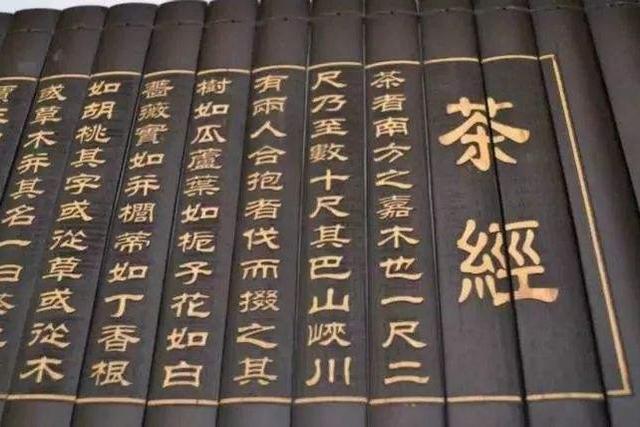 茶經
茶者南方之嘉木也一尺二
尺乃至數十尺其巴山峽川
有兩人合抱者伐而掇之其
樹如瓜蘆葉如栀子花如白
薔薇實如栟櫚蒂如丁香根
如胡桃其字或從草或從木
或草木并其名一曰茶